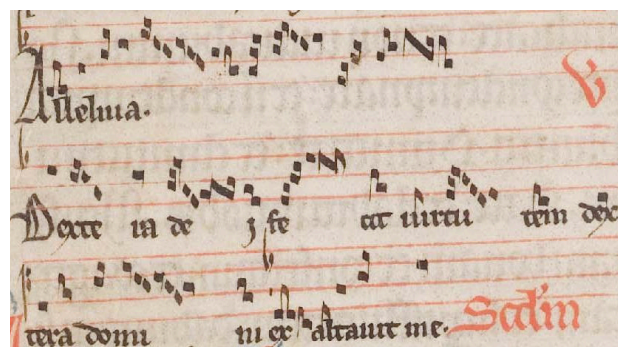 Alleluia. V
Dextera dei fecit uirtutem dex
tera domini exaltauit me. Scdm